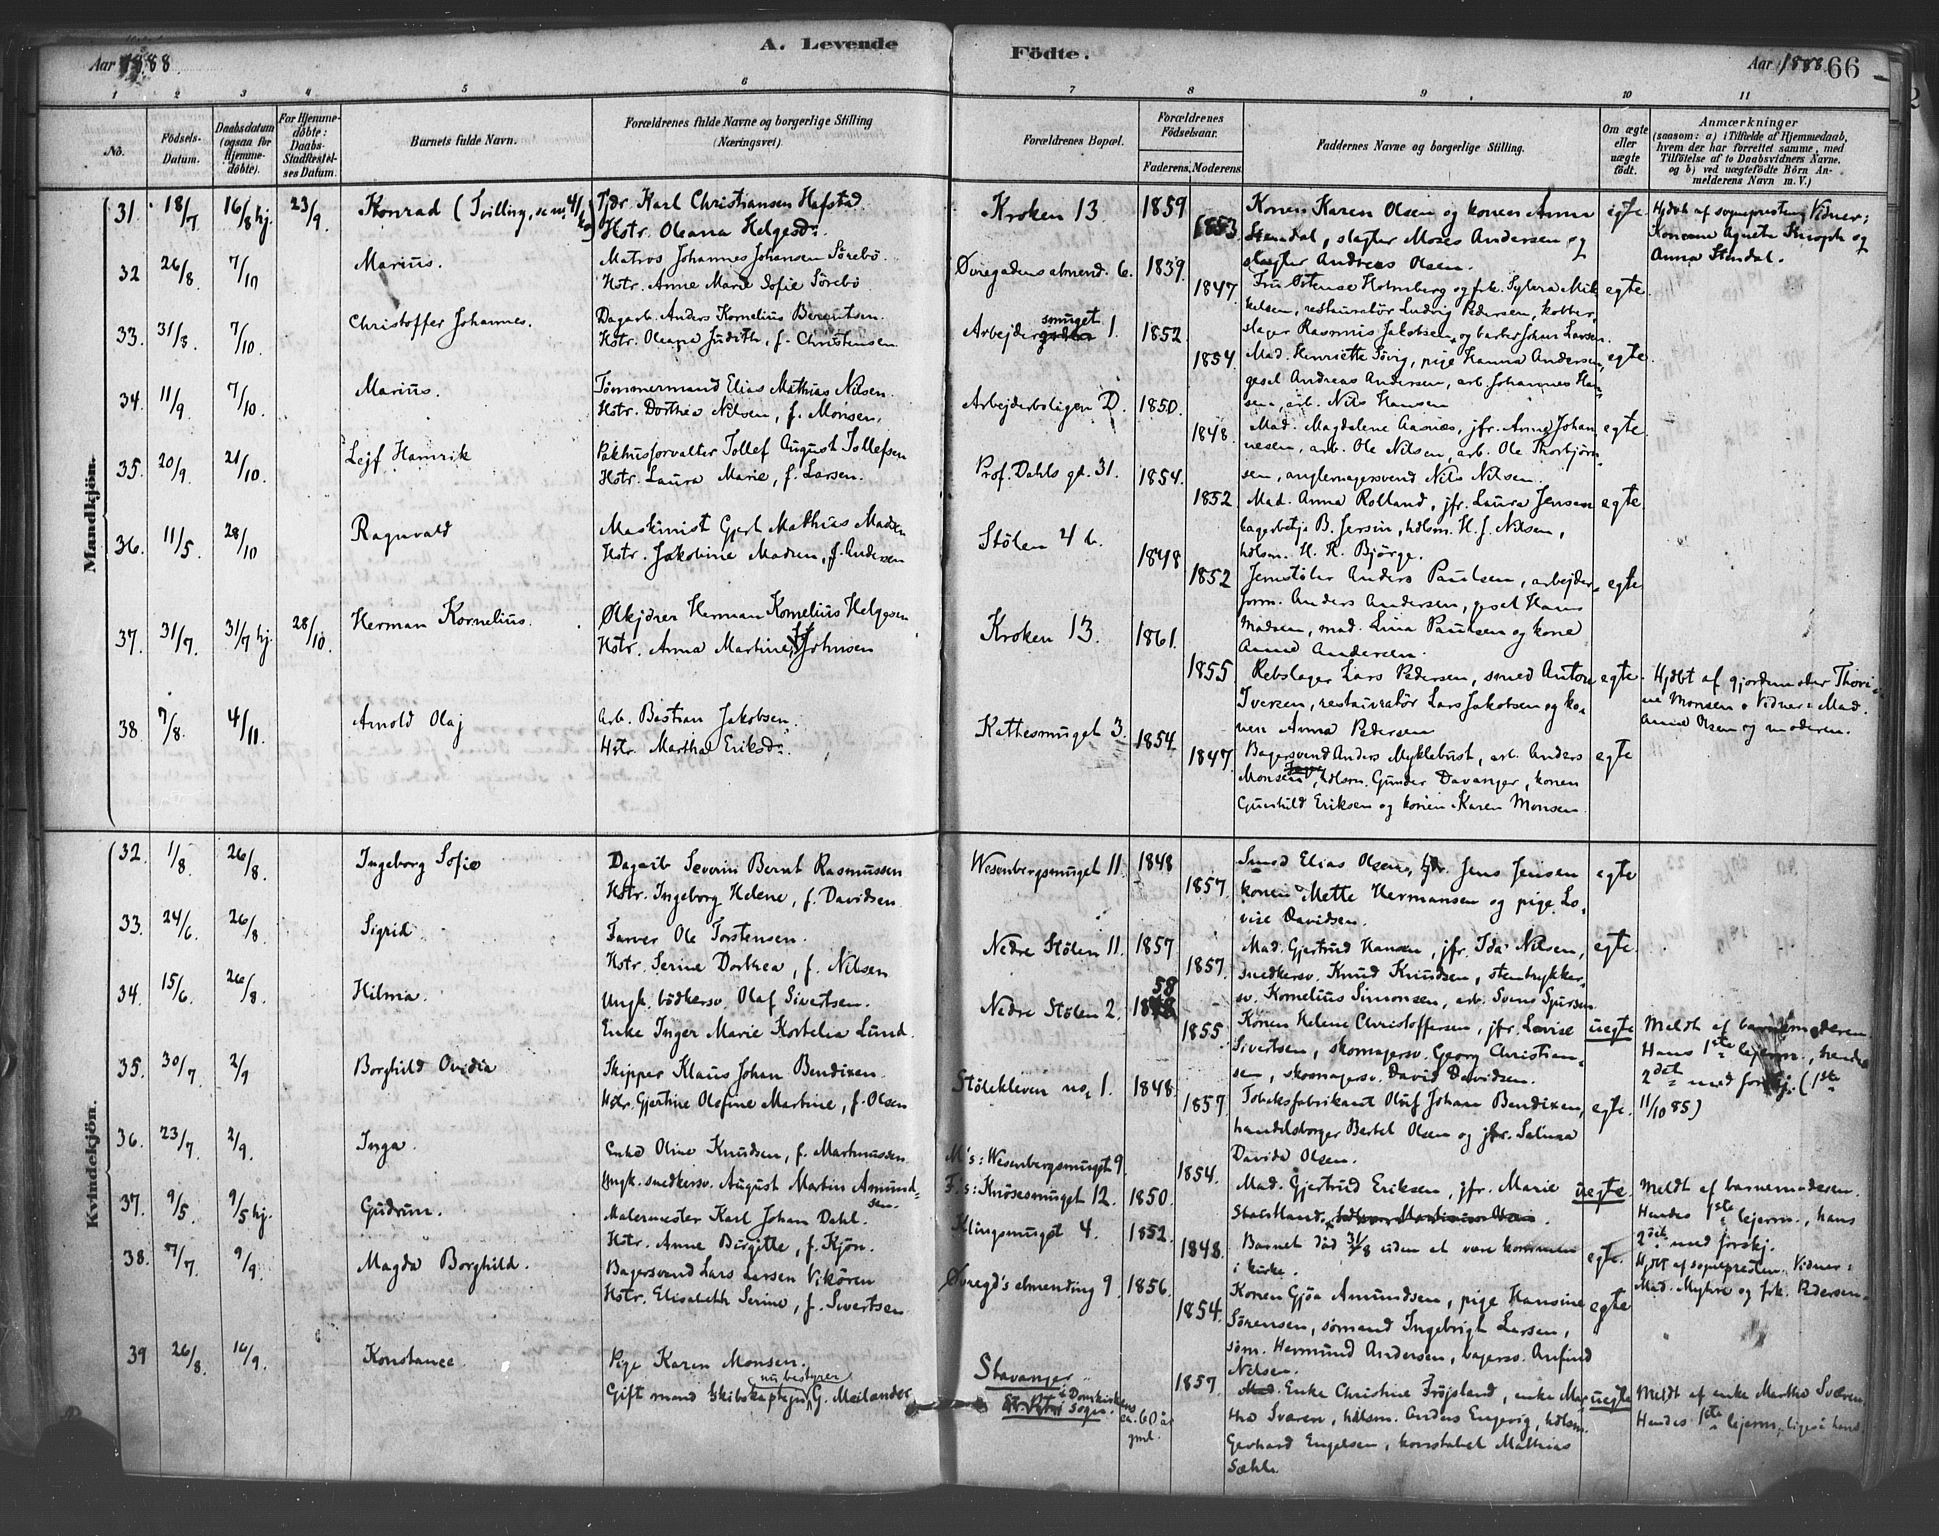 Aar 1888.
A. Levende
Födte.
Aar 1888. 66
1 2 3 4 5 6 7 8 9 10 11
No.
Födsels-Datum.
Daabsdatum (ogsaa for Hjemmedöbte).
For Hjemmedöbte: Daabs-Stadfæstelses Datum.
Barnets fulde Navn.
Forældrenes fulde Navne og borgerlige Stilling (Næringsvei).
Forældrenes Bopæl.
Forældrenes Födselsaar.
Faderens. Moderens.
Faddernes Navne og borgerlige Stilling.
Om ægte eller uægte födt.
Anmærkninger
(saasom: a) i Tilfælde af Hjemmedaab, hvem der har forrettet samme, med Tilföielse af to Daabsvidners Navne, og b) ved uægtefödte Börn Anmelderens Navn m. V.)
Mandkjön.
31. 18/7 16/8 hj. 23/9. Konrad (Tvilling, se nr.
Karl Christiansen Hafstad
Hstr. Oleana Helgesd:
Kroken 13 1859 1853
Konen Karen Olsen og konen Anna
Stendal, slagter Moses Andersen og
slagter Andreas Olsen.
egte
Hjdbt af sognepresten, Vidner:
Konerne Agnete og
Anna Stendal.
32 26/8 7/10 Marius.
Matros Johannes Johansen Sörebö.
Hstr. Anne Marie Sofie Sörebö
Øvregadens almend. 6. 1839. 1847.
Fru Ostense Holmberg og frk. Sylvra Mik
kelsen, restauratør Ludvig Pedersen, kobber,
slager Rasmus Jakobsen og barber Johan Larsen.
egte.
33. 31/8 7/10. Christoffer Johannes.
Dagarb. Anders Kornelius Berentsen.
Hstr. Oleana Judith, f. Christensen
Arbejdersmuget 1. 1852. 1854
Mad. Henriette Søvig, pige Hanna Andersen,
gesel Andreas Andersen, arb. Johannes Han-
sen, arb. Nils Hansen
egte.
34. 11/9 7/10. Marius.
Tømmermand Elias Mathias Nilsen.
Hstr. Dorthea Nilsen, f. Monsen.
Arbejderboligen D. 1850. 1848.
Mad. Magdalene Aasnæs, jfr. Anna Johan
nesen, arb. Ole Nilsen, arb. Ole Thorbjørn-
sen, anglemagersvend Nils Nilsen.
egte.
35. 20/9. 21/10. Lejf Henrik
Pakhusforvalter Tollef August Tollefsen
Hstr. Laura Marie, f. Larsen.
Prof. Dahls gd. 31. 1854. 1852
Mad. Anna Rolland, jfr. Laura Jensen
lagerbetj. B. Jersin, hdlsm. H. J. Nilsen,
hdlsm. H. R. Bjørge.
egte
36. 11/5. 28/10 Ragnvald
Maskinist Gjert Mathias Madsen
Hstr. Jakobine Madsen, f. Andersen
Stölen 4 b. 1848 1852
Jernstøber Anders Paulsen, arbejder-
form. Anders Andersen, gesel Hans
Madsen, mad. Lina Paulsen og kone
Anna Andersen.
egte
37. 31/7. 31/7 hj. 28/10. Herman Kornelius.
Ølkjører Herman Kornelius Helgesen
Hstr. Anna Martine, f. Johnsen
Kroken 13. 1861. 1855
Rebslager Lars Pedersen, smed Anton
Iversen, restauratør Lars Jakobsen og ko-
nen Anna Pedersen
egte
Hjdbt af gjordemoder Thori-
ne Monsen. Vidner: Mad.
Anne Olsen og moderen.
38. 7/8. 4/11. Arnold Olaj
Arb. Bastian Jakobsen.
Hstr. Martha Eriksd:.
Kattesmuget 3. 1854. 1847.
Bagersvend Anders Myklebust, arb. Anders
Monsen, hdlsm. Gunder Davanger, konen
Gunhild Eriksen og konen Karen Monsen.
egte
Kvindekjön.
32. 1/8. 26/8. Ingeborg Sofie
Dagarb Severin Bernt Rasmussen
Hstr. Ingeborg Helene, f. Davidsen
Wesenbergsmuget 11. 1848 1857.
Smed Elias Olsen, Jens Jensen
konen Mette Hermansen og pige Lo-
vise Davidsen.
egte
33. 24/6. 26/8 Sigrid
Farver Ole Torstensen.
Hstr. Serine Dorthea, f. Nilsen
Nedre Stölen 11. 1857 1857.
Mad. Gjertrud Hansen, jfr. Ida Nilsen,
snedkersv. Knud Knudsen, stentrykker-
sv. Kornelius Simonsen, arb. Svens Sjursen
egte.
34. 15/6. 26/8. Hilma.
Ungk. bødkersv. Olaf Sivertsen.
Enke Inger Marie Kortelia Lund.
Nedre Stølen 2. 58 1855.
Konen Helene Christoffersen, jfr. Lovise
Sivertsen, skomagersv. Georg Christian-
sen, skomagersv. David Davidsen.
uegte
Meldt af barnemoderen
Hans 1ste lejerm., hendes
2det med forskj. (1ste
11/10 85)
35. 30/7. 2/9 Borghild Ovidia
Skipper Klaus Johan Bendixen.
Hstr. Gjertine Olefine Martine, f. Olsen
Stölekleven no. 1. 1848. 1857.
Tobaksfabrikant Oluf Johan Bendixen,
handelsborger Bertel Olsen og jfr. Salmea
Davida Olsen.
egte.
36. 23/7. 2/9. Inga.
Enke Oline Knudsen, f. Martinussen
Ungk. snedkersv. August Martin Amund-
sen.
M's: Wesenbergsmuget 9.
F's: Knøsesmuget 12. 1850. 1854.
Mad. Gjertrud Eriksen, jfr. Marie
Barnet død 31/8 uden at være kommen
i kirke.
uegte.
Meldt af barnemoderen.
Hendes 1ste lejerm., hans
2det med forskj.
37. 9/5. 9/5 hj. Gudrun.
Malermester Karl Johan Dahl.
Hstr. Anne Birgitte, f. Kjön.
Klingesmuget 4. 1852. 1848.
egte.
Hjdbt af sognepresten. Vidner:
Mad. Myhre og frk. Pedersen.
38. 7/7. 9/9. Magda Borghild.
Bagersvend Lars Larsen Vikören
Hstr. Elisabeth Serine, f. Sivertsen.
Øvregd's almending 9. 1856. 1854.
Konen Gjøa Amundsen, pige Hansine
Sørensen, sømand Ingebrigt Larsen,
søm. Hermund Andersen, bagersv. Anfind
Nilsen.
egte
39 26/8 16/9. Konstance.
Pige Karen Monsen.
Gift mand Skibskaptejn, nu bestyrer G. Meilander
Stavanger
Domkirkens
St. Petri Sogn. ca. 60 år
gml. 1857.
Enke Christine Frøjsland, enke Mar
tha Sværen, hdlsm. Anders Engevig, hdlsm.
Gerhard Engelsen, konstabel Mathias
Sæhle.
uegte
Meldt af enke Martha Sværen.
Hendes 1ste lejerm., ligeså hans